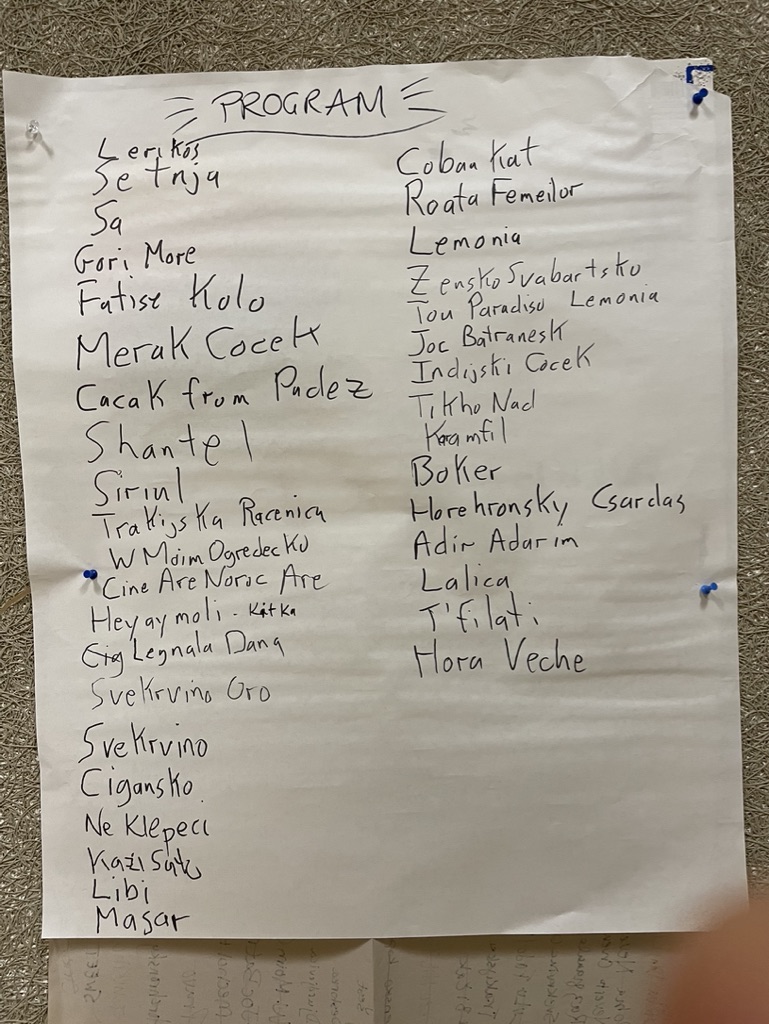 PROGRAM
Lerikos
Setnja
Sa
Gori More
Fatise Kolo
Merak Cocek
Cacak from Padez
Shantel
Siriul
Trakijska Racenica
W Moim Ogrodecko
Cine Are Noroc Are
Hey ay moli - Kitka
Legnala Dana
Svekrvino Oro
Svekrvino
Cigansko
Ne Klepeci
Libi
Masar
Coban Kat
Roata Femeilor
Lemonia
Zensko Svabartsko
Tou Paradiso Lemonia
Joc Batranesk
Indijski Cocek
Tikho Nad
Karamfil
Boker
Horehronsky Csardas
Adir Adarim
Lalica
T'filati
Hora Veche